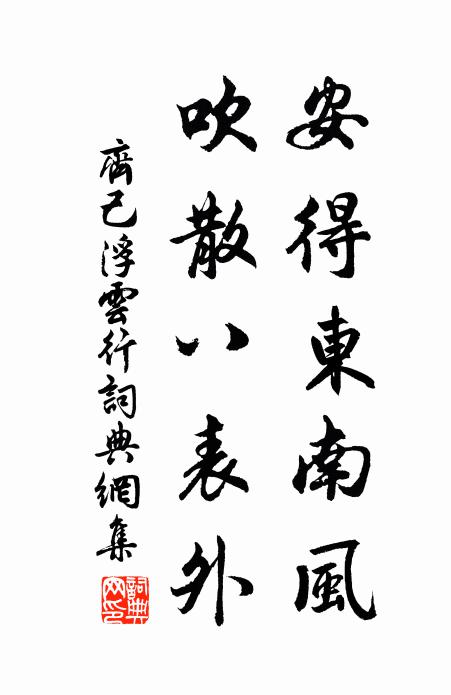 安得東南風
吹散八表外
齊己浮雲行詞典網集
詞典網印